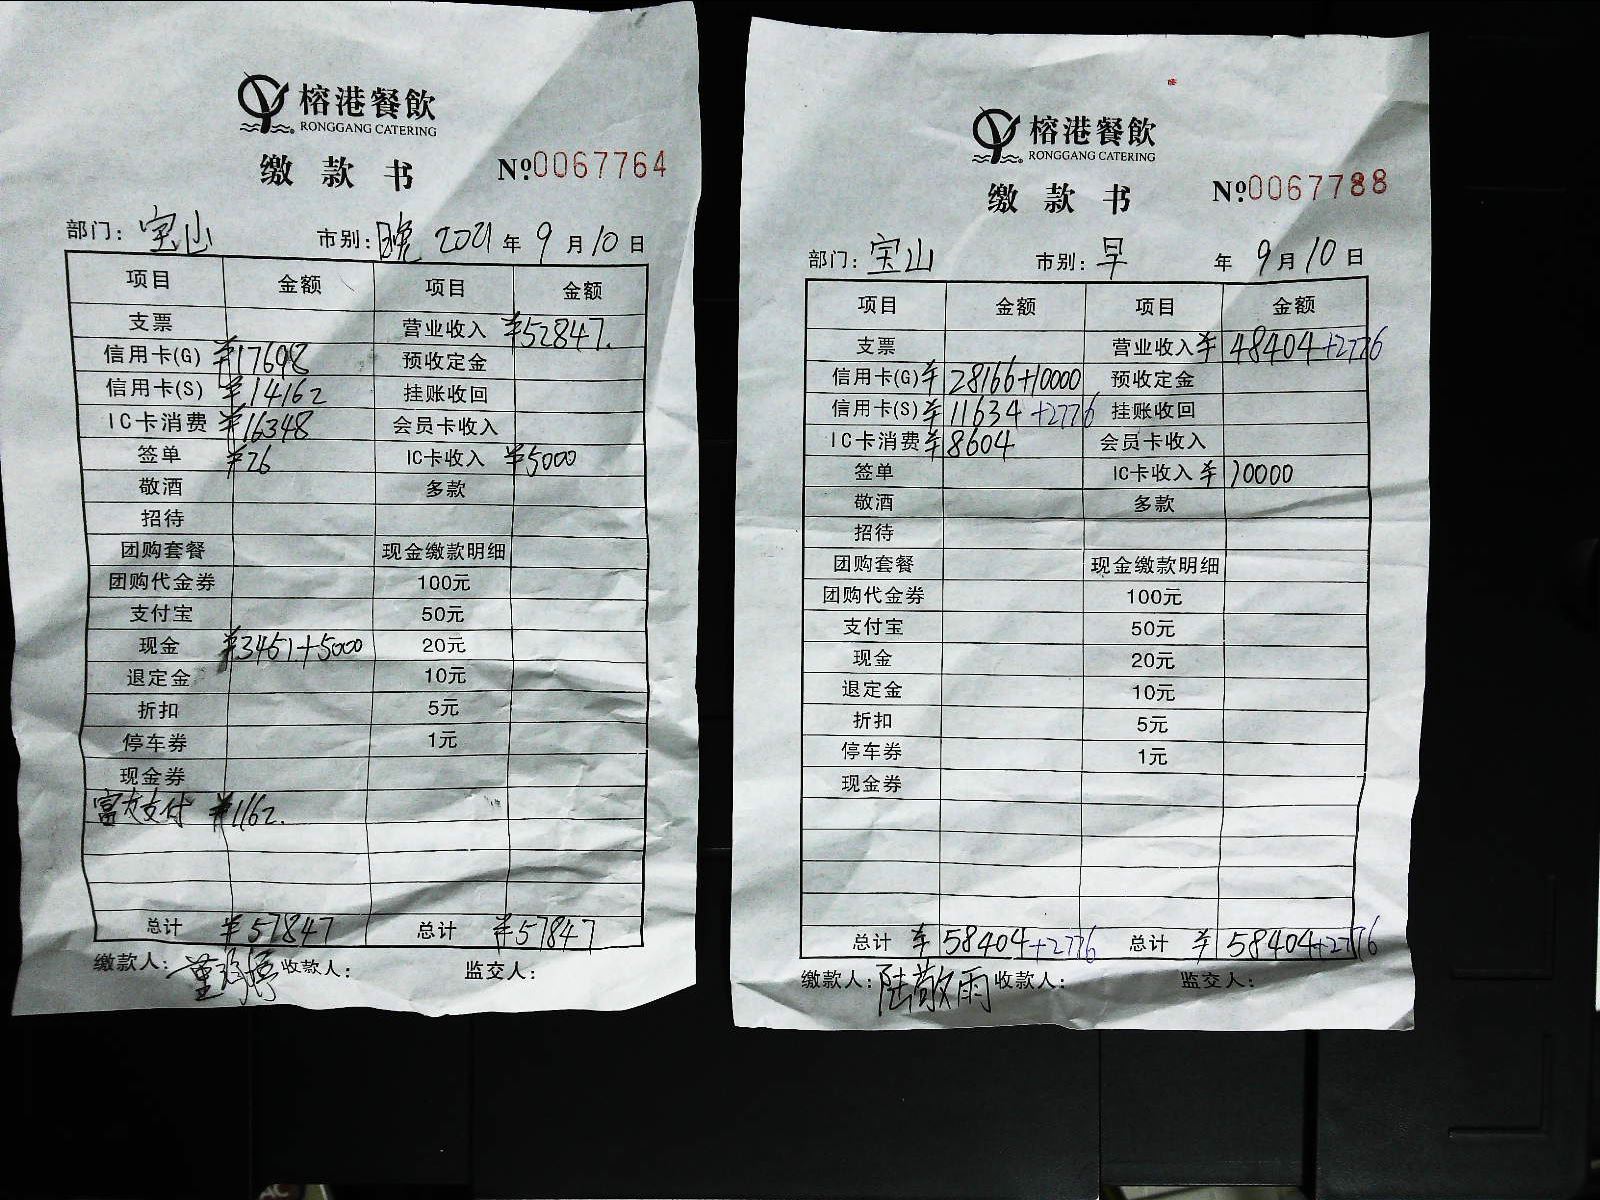 榕港餐飲
RONGGANG CATERING
缴款书 №0067764
部门: 宝山 市别: 晚 2021年 9月 10日
项目 金额 项目 金额
支票 营业收入 ¥52847.
信用卡(G) ¥17698 预收定金
信用卡(S) ¥14162 挂账收回
IC卡消费 ¥16348 会员卡收入
签单 ¥26 IC卡收入 ¥5000
敬酒 多款
招待
团购套餐 现金缴款明细
团购代金券 100元
支付宝 50元
现金 ¥3451+5000 20元
退定金 10元
折扣 5元
停车券 1元
现金券
富友支付 ¥1162.
总计 ¥57847 总计 ¥57847
缴款人: 收款人: 监交人:
榕港餐飲
RONGGANG CATERING
缴款书 №0067788
部门: 宝山 市别: 早 年 9月 10日
项目 金额 项目 金额
支票 营业收入 ¥48404+2776
信用卡(G) ¥28166+10000 预收定金
信用卡(S) ¥11634+2776 挂账收回
IC卡消费 ¥8604 会员卡收入
签单 IC卡收入 ¥10000
敬酒 多款
招待
团购套餐 现金缴款明细
团购代金券 100元
支付宝 50元
现金 20元
退定金 10元
折扣 5元
停车券 1元
现金券
总计 ¥58404+2776 总计 ¥58404+2776
缴款人: 陆敬雨 收款人: 监交人: